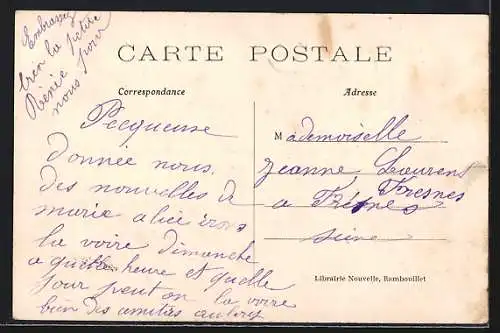 Embrassez
bien la petite
Rénée pour
nous
CARTE POSTALE
Correspondance
Pecqueuse
donnée nous.
des nouvelles de
marie alice irons
la voire dimanche
a quelle heure et quelle
jour peut on la voire
bien des amitiés
Adresse
Mademoiselle
Jeanne Laurens
a Frésnes Fresnes
Seine
Librairie Nouvelle, Rambouillet